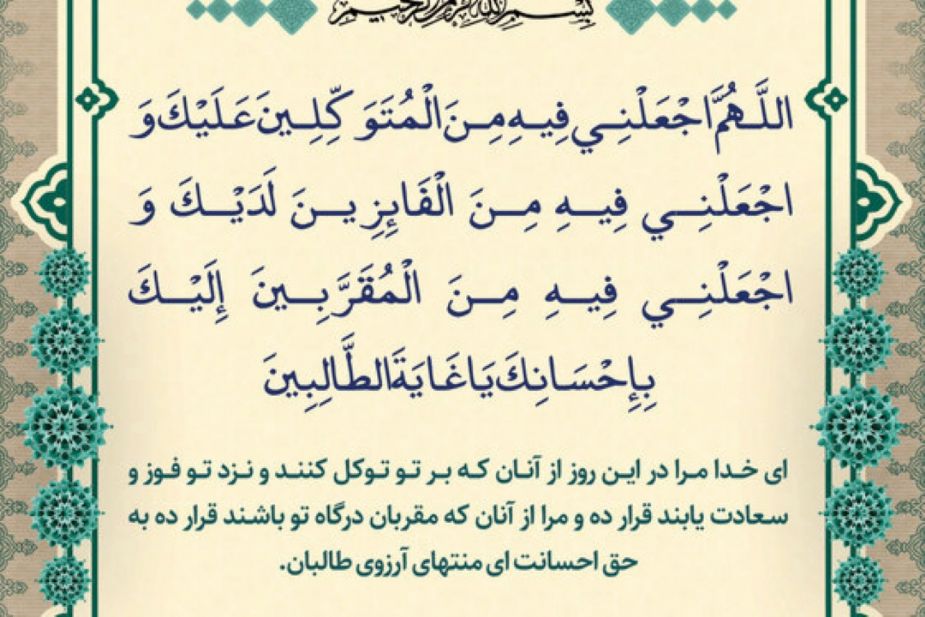 بِسْمِ اللَّهِ الرَّحْمَٰنِ الرَّحِيمِ
اللَّهُمَّ اجْعَلْنِي فِيهِ مِنَ الْمُتَوَكِّلِينَ عَلَيْكَ وَ
اجْعَلْنِي فِيهِ مِنَ الْفَايِزِينَ لَدَيْكَ وَ
اجْعَلْنِي فِيهِ مِنَ الْمُقَرَّبِينَ إِلَيْكَ
بِإِحْسَانِكَ يَا غَايَةَ الطَّالِبِينَ
ای خدا مرا در این روز از آنان که بر تو توکل کنند و نزد تو فوز و
سعادت یابند قرار ده و مرا از آنان که مقربان درگاه تو باشند قرار ده به
حق احسانت ای منتهای آرزوی طالبان.